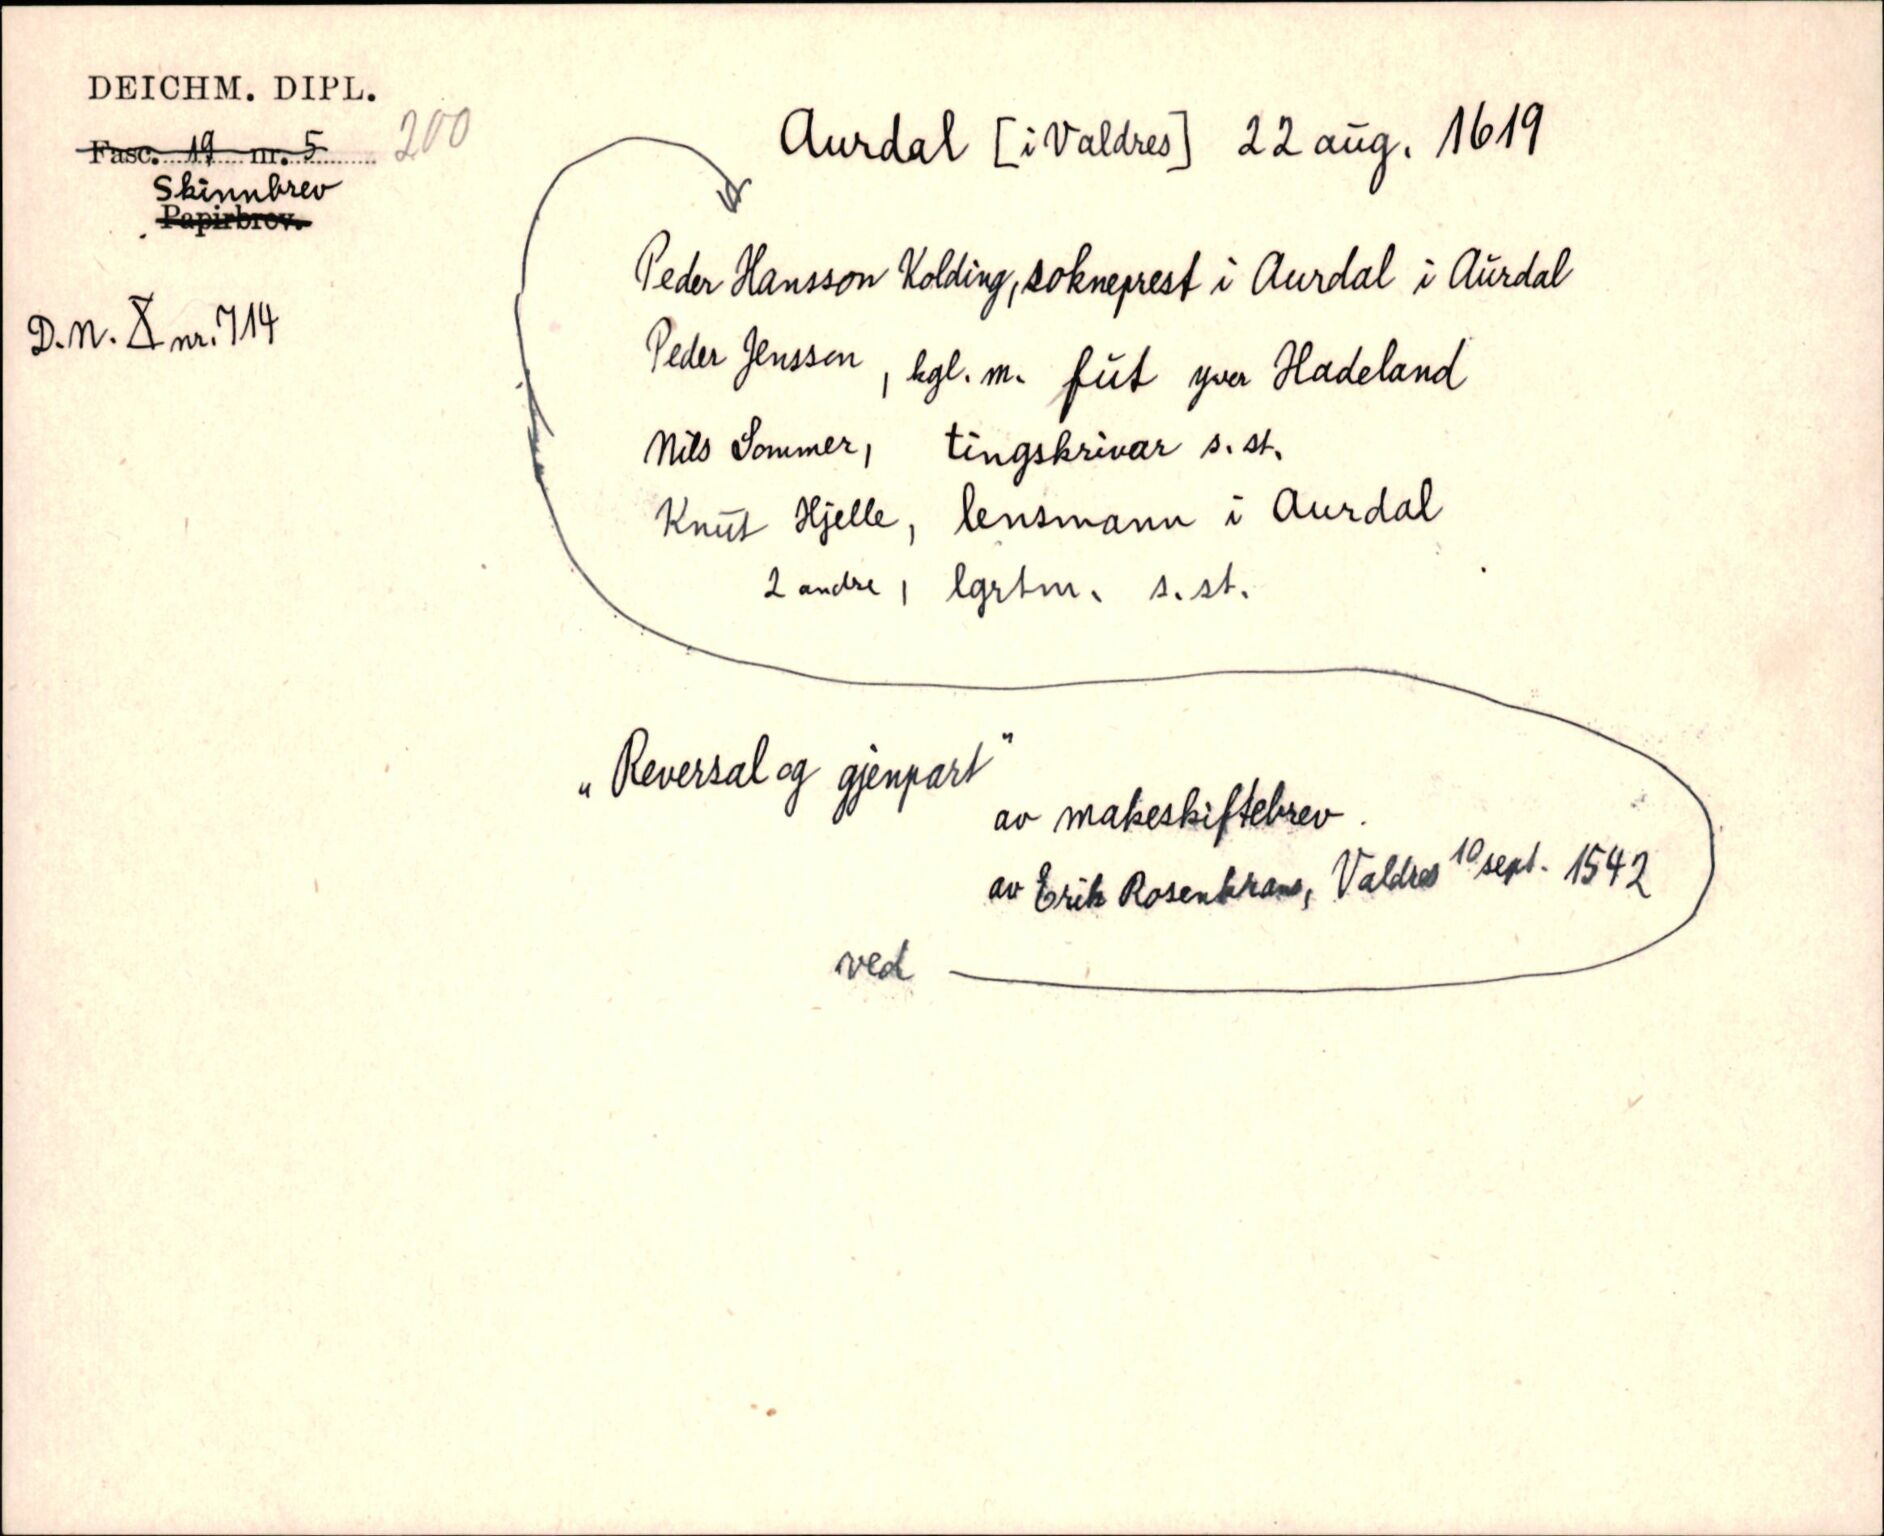 DEICHM. DIPL.
Fasc. 19 nr. 5 200
Skinnbrev
Papirbrev.
D.N. X nr. 714
Aurdal [i Valdres] 22 aug. 1619
Peder Hansson Kolding, sokneprest i Aurdal i Aurdal
Peder Jensson, kgl. m. fut yver Hadeland
Nils Sommer, tingskrivar s. st.
Knut Hjelle, lensmann i Aurdal
2 andre, lgrtm. s. st.
„Reversal og gjenpart"
av makeskiftebrev.
av Erik Rosenkrans, Valdres 10 sept. 1542
ved